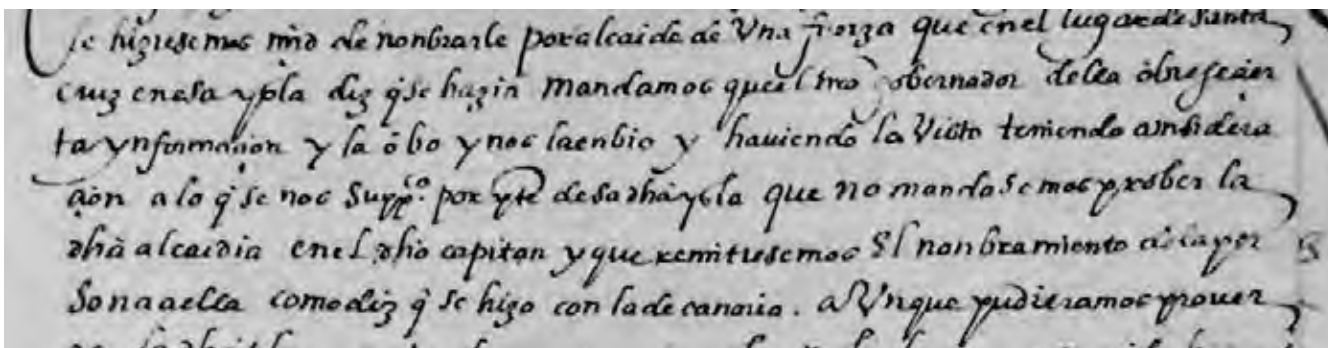 se hiziesemos mrd de nonbrarle por alcaide de Una fuerza que en el lugar de santa
cruz en esa ysla diz q̃ se hazia mandamos que el nro gobernador della obiese cier
ta ynformaçion y la obo y nos la enbio y haviendo la Visto teniendo considera
çion a lo q̃ se nos supp.co por pte de sa dha ysla que no mandasemos prober la
dha alcaidia en el dho capitan y que remitiesemos El nonbramiento de la per
sona a ella como diz q̃ se hizo con la de canaria. aUnque pudieramos prouer